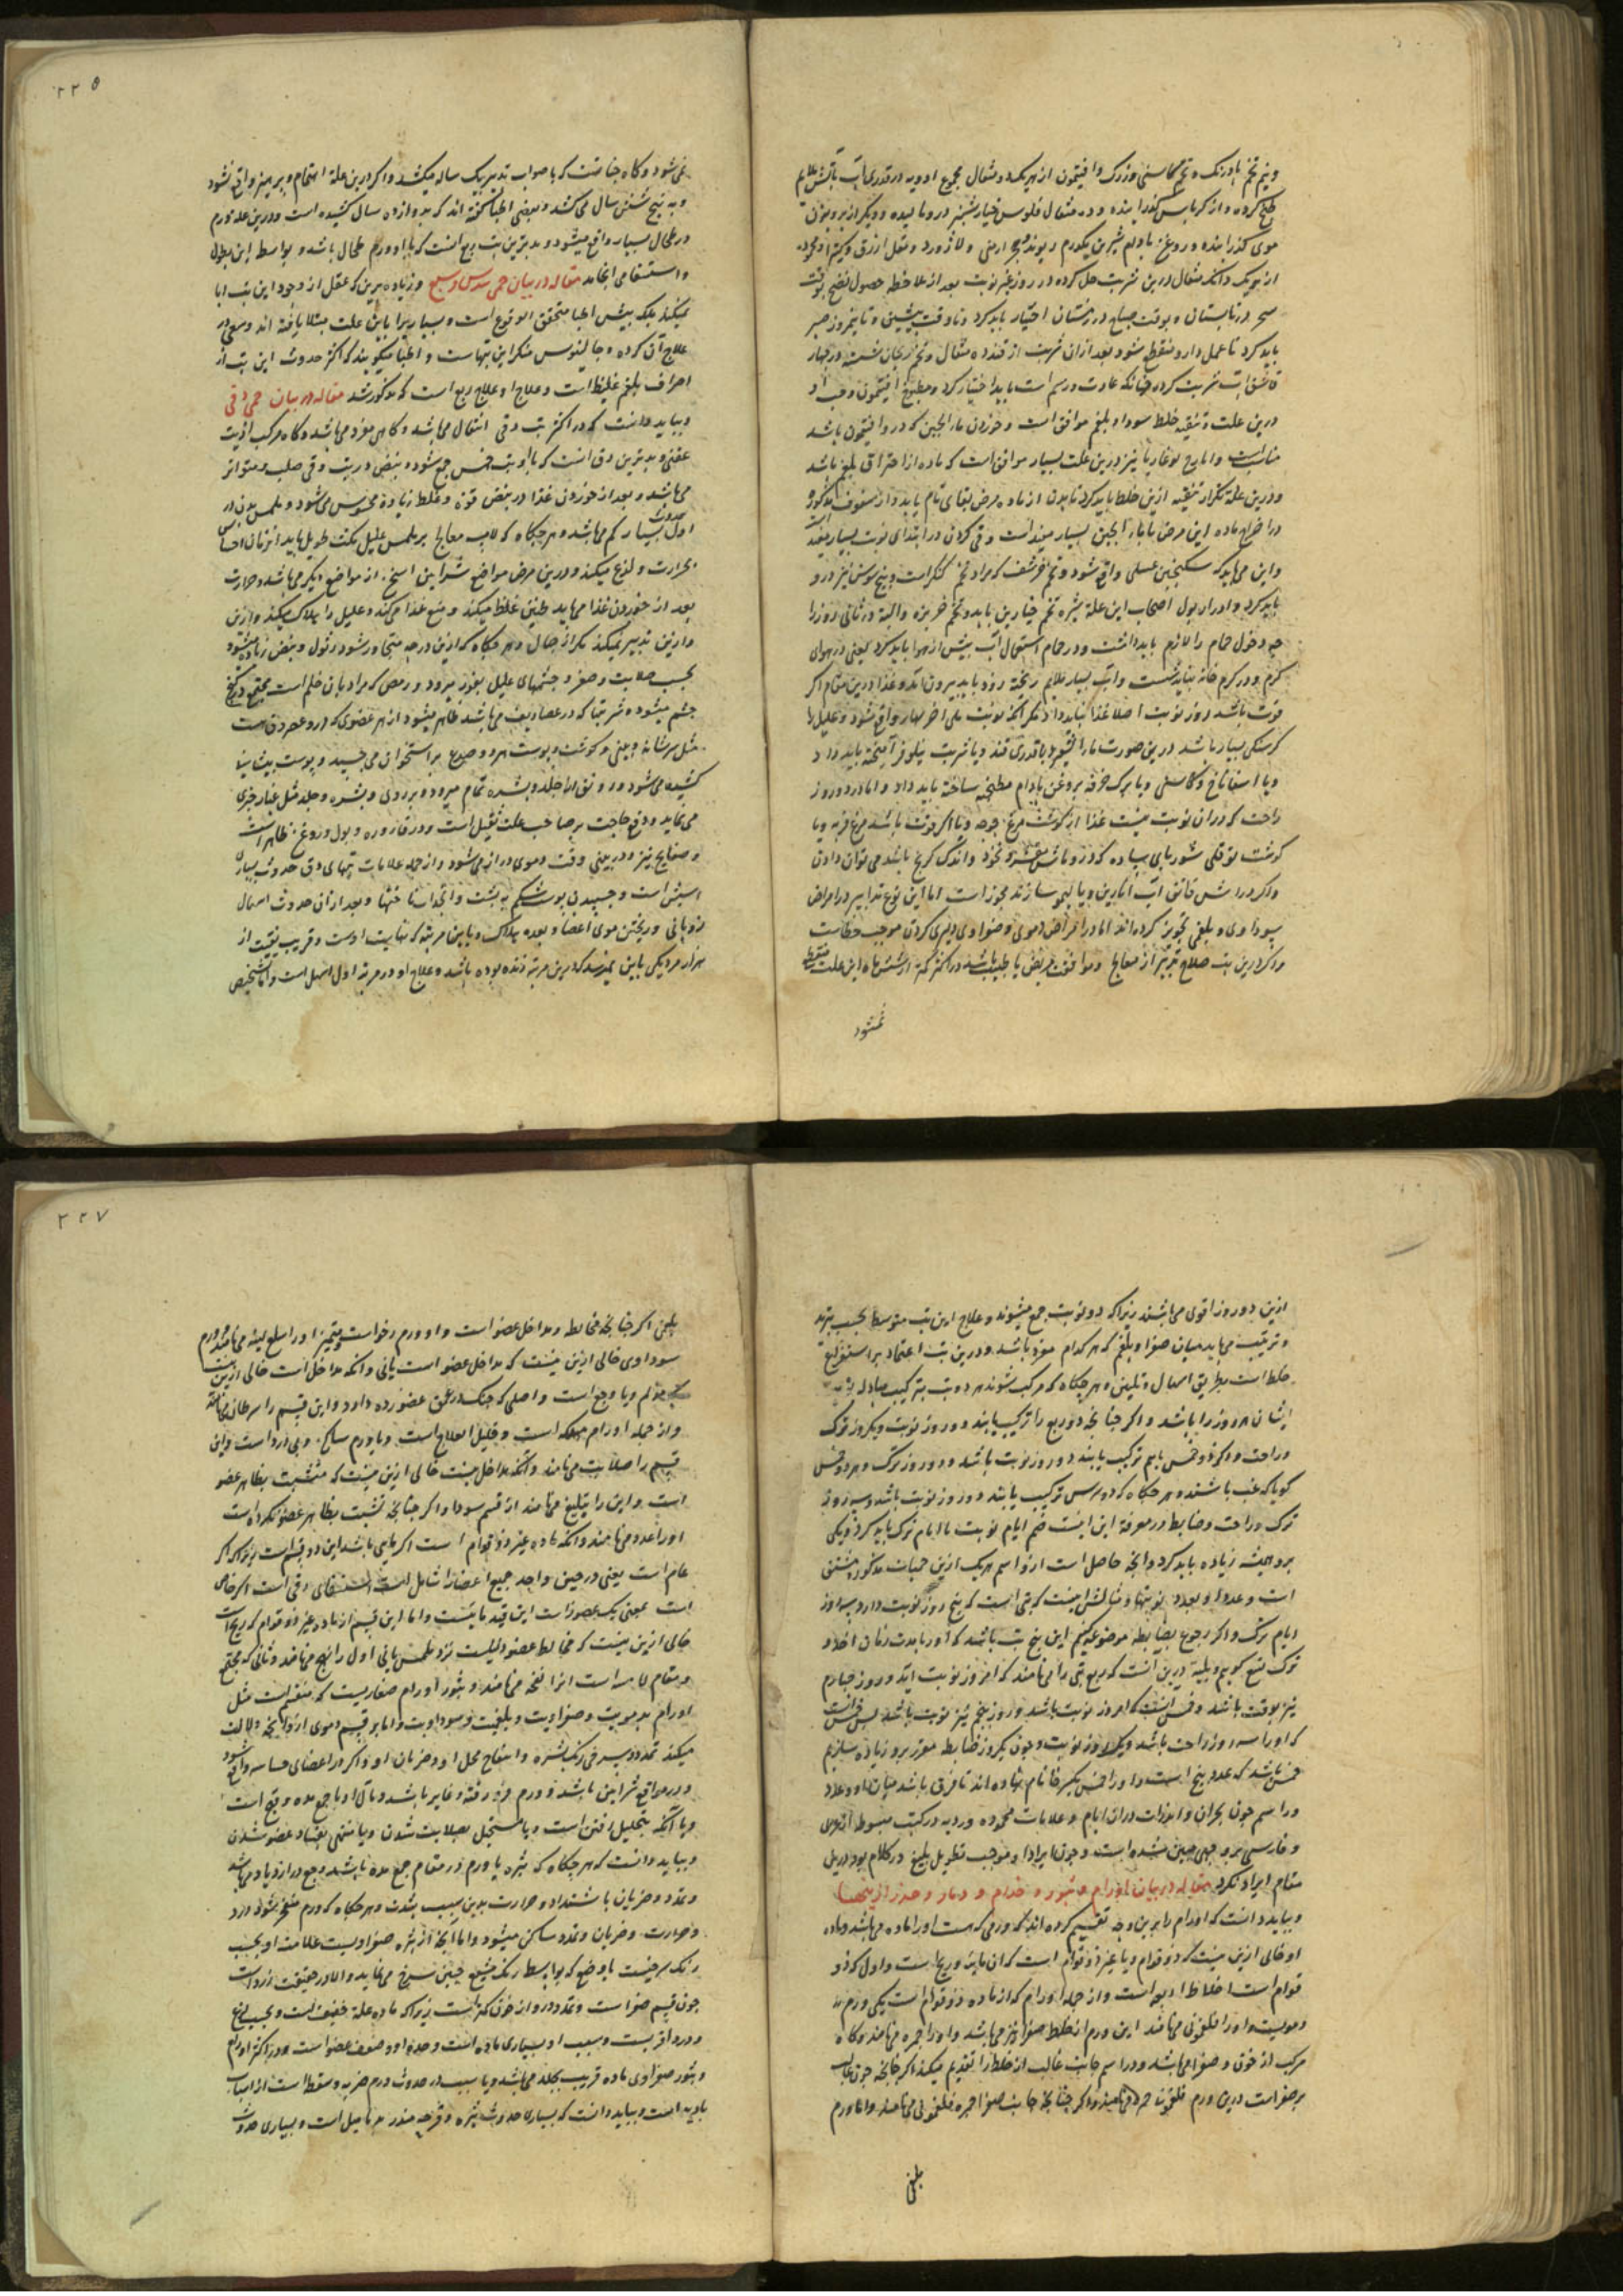 ۲۲۵
و نیم تخم بادرنک و تخم کاسنی و زرک و افیتمون از هر یک دو مثقال مجموع ادویه در قدری آب بآتش ملایم
طبخ کرده و از کرباس کذرانیده و ده مثقال فلوس خیارشنبر در و مالیده و دیکر از پرویزن
موی کذرانیده و روغن بادام شیرین یکدرم ریوند و حجر ارمنی و لاژورد و مقل ازرق و کتیرا
از هر یک دانک مثقال درین شربت حل کرده در روز غیر نوبت بعد از ملاحظه حصول نضج بوقت
سحر در تابستان و بوقت صباح در زمستان اختیار باید کرد و تا وقت پیشین و تا نیمروز صبر
باید کرد تا عمل دارو منقطع شود بعد از آن شربت از قند ده مثقال و تخم ریحان شسته در چهار
قاشق آب شربت کرده چنانکه عادت و رسم است باید اختیار کرد و مطبوخ افیتمون و حب او
درین علت و تنقیه خلط سودا و بلغم موافق است و خوردن ماء الجبن که در و افیتمون باشد
مناسبست و ایارج لوغاریا نیز درین علت بسیار موافق است که ماده از احتراق بلغم باشد
و درین علة تکرار تنقیه ازین خلط باید کرد تا بدن از ماده مرض بقای تام یابد و از سفوف مذکور
در اخراج ماده این مرض با ماء الجبن بسیار مفید است و قی کردن در ابتدای نوبت بسیار مفید است
و این می باید که بسکنجبین عسلی واقع شود و تخم خرشف که مراد تخم کنکر است و بیخ سوسن نیز در و
باید کرد و ادرار بول اصحاب این علة بشیره تخم خیارین باید و تخم خربزه و البته در ثانی روز را
چه دخول حمام را لازم باید داشت و در حمام استعمال آب بیش از هوا باید کرد یعنی در هوای
کرم و در کرم خانه نباید نشست و آب بسیار ملایم ریخته زود باید بیرون آمد و غذا درین مقام اکر
قوت باشد روز نوبت اصلا غذا نباید داد مکر آنکه نوبت علی آخر نهار واقع شود و علیل را
کرسنکی بسیار باشد درین صورت ماء الشعیر با قدری قند و یا شربت نیلوفر آمیخته باید داد
و یا اسفاناخ و کاسنی و یا برک خرفه بروغن بادام مطنجنه ساخته باید داد و اما در دو روز
راحت که در آن نوبت نیست غذا از کوشت مرغ جوجه و یا اکر قوت باشد مرغ فربه و یا
کوشت توقلی شوربای ساده که در و ماش مقشر و نخود و اندک کرنج باشد می توان دادن
و اکر در آش قاتق آب انارین و یا لیمو سازند مجوز است اما این نوع تدابیر در امراض
سوداوی و بلغمی تجویز کرده اند اما در امراض دموی و صفراوی دلیری کردن موجب خطاست
و اکر درین تب صلاح تدبیر از معالج و موافقت مریض با طبیب باشد در اکثر کمتر از شش ماه این علت منقطع
نمیشود
نمی شود و کاه چنانست که با صواب تدبیر یک ساله میکشد و اکر درین علة اهتمام و پرهیز واقع نشود
و به پنج شش سال می کشد و بعضی اطبا کفته اند که بدوازده سال کشیده است و درین علة ورم
در طحال بسیار واقع میشود و بدترین تب ربع آنست که با او ورم طحال باشد و بواسطه این بطول
و استسقا می انجامد مقاله در بیان حمی سدس و سبع و زیاده برین که عقل از وجود این تب ابا
نمیکند بلکه پیش اطبا متحقق الوقوع است و بسیار برا باین علت مبتلا یافته اند و سعی در
علاج آن کرده و جالینوس منکر این تبهاست و اطبا میکویند که اکثر حدوث این تب از
احراق بلغم غلیظ است و علاج او علاج ربع است که مذکور شد مقاله در بیان حمی دقی
و بباید دانست که در اکثر تب دقی انتقال می باشد و کاهی مفرد می باشد و کاه مرکب از تب
عفنی و بدترین دق آنست که با او تب خمس جمع شود و نبض در تب دقی صلب و متواتر
می باشد و بعد از خوردن غذا در نبض قوة و غلظ زیاده محسوس می شود و ملمس بدن در
اول حدوث بسیار کم می باشد و هر جکاه که لامس معالج بر ملمس علیل مکث طویل یابد آن زمان احساس
حرارت و لذع میکند و درین مرض مواضع شرائین اسخن از مواضع دیکر می باشد و حرارت
بعد از خوردن غذا می یابد طنین غلط میکند و منع غذا می کند و علیل را هلاک میکند و ازین
و ازین تدبیر نمیکند مکر از جهال و هر جکاه که ازین درجه متجاوز شود در ذبول و نبض زیاده میشود
بحسب صلابت و صغر و چشمهای علیل بغور میرود و رمص که مراد بآن خلم است مجتمع در کنج
چشم میشود و شرسفها که در غضاریف می باشد ظاهر میشود از هر عضوی که در و عضروف هست
مثل سر شانه و بینی و کوشت و پوست هر دو صدغ بر استخوان می چسبد و پوست پیشانی
کشیده می شود و رونق از جلد و بشره تمام میرود و بر روی و بشره و جلد مثل غبار چیزی
می نماید و رفع حاجت بر صاحب علت ثقیل است و در قاروره و بول و روغن ظاهر است
و صفایح نیز و در بینی وقت و موی دراز می شود و از جمله علامات تبهای دق حدوث بسیار
اسپش است و چسبیدن پوست شکم به پشت و انجذاب ناخنها و بعد از آن حدوث اسهال
ذوبانی و ریختن موی اعضا و بعده هلاک و باین مرتبه که نهایت اوست و قریب نیست از
هزار مرد یکی باین نمیرسد که درین مرتبه زنده بوده باشد و علاج او در مرتبه اول اسهل است و اما تشخیص
۲۲۷
ازین دو روز اقوی می باشند زیرا که دو نوبت جمع میشوند و علاج این تب متوسط بحسب تبرید
و ترتیب می باید میان صفرا و بلغم که هر کدام مفرد باشد و درین تب اعتماد بر استفراغ
خلط است بطریق اسهال و تلیین و هر جکاه که مرکب شوند هر دو تب بترکیب مبادله
ایشان هر روز را باشد و اکر چنانچه دو ربع را ترکیب یابند دو روز نوبت و یکروز ترک
و راحت و اکر دو خمس باهم ترکیب یابند دو روز نوبت باشد و دو روز ترک و هر دو خمس
کویا که غب باشند و هر جکاه که دو سدس ترکیب یابند دو روز نوبت باشد و سه روز
ترک و راحت و ضابطه در معرفة این اینست ضم ایام نوبت با ایام ترک باید کرد و یکی
برو همیشه زیاده باید کرد و آنچه حاصل است از و اسم هر یک ازین حمیات مذکور مشتق
است و عدد او بعدد نوبتها و مثالش اینست که تبی است که پنج روز نوبت دارد و سه روز
ایام ترک و اکر رجوع بضابطه موضوع کنیم این پنج تب باشد که او را بمدت زمان اخذ و
ترک تسع کوییم و بلیة درین آنست که ربع تبی را می نامند که امروز نوبت آید و روز چهارم
نیز نوبت باشد و خمس آنست که امروز نوبت باشد و روز پنجم نیز نوبت باشد پس خمس آنست
که او را سه روز راحت باشد و یک روز نوبت و چون یکروز ضابطه مقرر برو زیاده سازیم
خمس باشد که عدد پنج است و او را خمس بکسر خا نام نهاده اند تا فرق باشد میان او و عدد
و راسم چون بحران و انذارات در آن ایام و علامات محموده و ردیه در کتب مبسوط عربی
و فارسی بر وجهی مبین شده است و چون ایراد او موجب تطویل بلیغ در کلام بود درین
مقام ایراد نکرد مقاله در بیان اورام و بثور و جذام و دمار و حذر از اینها
و بباید دانست که اورام را برین وجه تقسیم کرده اند که ورمی که هست او را ماده می باشد و ماده
او خالی ازین نیست که ذو قوام و یا غیر ذو قوام است که آن مایته و ریح است و اول که ذو
قوام است اخلاط اربعه است و از جمله اورام که از ماده ذو قوام است یکی ورم
دمویست و او را فلغمونی می نامند این ورم از خلط صفرا نیز می باشد و او را حمره می نامند و کاه
مرکب از خون و صفرا می باشد و در اسم جانب غالب از خلط را تقدیم میکنند اکر چنانچه خون غالب
بر صفراست درین ورم فلغمونی حمره می نامند و اکر چنانچه جانب صفرا حمره فلغمونی می نامند و اما ورم
بلغمی
بلغمی اکر چنانچه مخالط و مداخل عضو است و او ورم رخو است و متمیز او را سلع لینه می نامند و ورم
سوداوی خالی ازین نیست که مداخل عضو است یا نی و آنکه مداخل است خالی ازین نیست
مولم و با وجع است و اصلی که چنک در عمق عضو زده دارد و این قسم را سرطان می نامند
و از جمله اورام مهلکه است و قلیل العلاج است و یا ورم ساکن و بی درد است و این
قسم را صلابت می نامند و آنکه مداخل نیست خالی ازین نیست که متشبث بظاهر عضو
است و این را تبلیغ می نامند از قسم سودا و اکر چنانچه تشبث بظاهر عضو نکرده است
او را غدد می نامند و آنکه ماده غیر ذو قوام است اکر مایی باشد این دو قسم است زیرا که اکر
عام است یعنی در حین واحد جمیع اعضا را شامل است استسقای زقی است اکر خاص
است بمعنی یک عضو است این قید مائیست و اما این قسم از ماده غیر ذو قوام که ریح است
خالی ازین نیست که مخالط عضو و لینست نزد ملمس یا نی اول را تهبج می نامند و ثانی که مجتمع
و مقام لامسه است آنرا نفخه می نامند و بثور اورام صغاریست که منقسم است مثل
اورام بدمویت و صفراویت و بلغمیت و سوداویت و اما بر قسم دموی از و آنچه دلالت
میکند تمدد و سرخی رنک بشره و انتفاخ محل او و ضربان او و اکر در اعضای حساسه واقع شود
و در مواقع شرائین باشد و ورم فرو رفته و غایر باشد و مآل او یا جمع مده و قیح است
و یا آنکه بتحلیل رفتن است و یا مستحیل بصلابت شدن و یا منتهی بفساد عضو شدن
و بباید دانست که هر جکاه که بثره یا ورم در مقام جمع مده باشد وجع در ازدیاد می باشد
و تمدد و ضربان با شتداد و حرارت بدین سبب بشدت و هر جکاه که ورم منفجر شود درد
و حرارت و ضربان و تمدد ساکن میشود و اما آنچه از بثره صفراویست علامت او بحسب
رنک سرخیست با وضعی که بواسطه رنک مشبع چنین سرخ می نماید و الا در حقیقت زرد است
چون قسم صفراست و تمدد در و از خون کمتر است زیرا که ماده علة خفیف است و بحسب لذع
و درد اقربست و سبب او بسیاری ماده است و حدة او و ضعف عضو است و در اکثر اورام
و بثور صفراوی ماده قریب بجلد می باشد و یا سبب در حدوث ورم ضربه و سقطه است از اسباب
بادیه است و بباید دانست که بسیاری حدوث بثره و قرحه منذر به دمامیل است و بسیاری حدوث